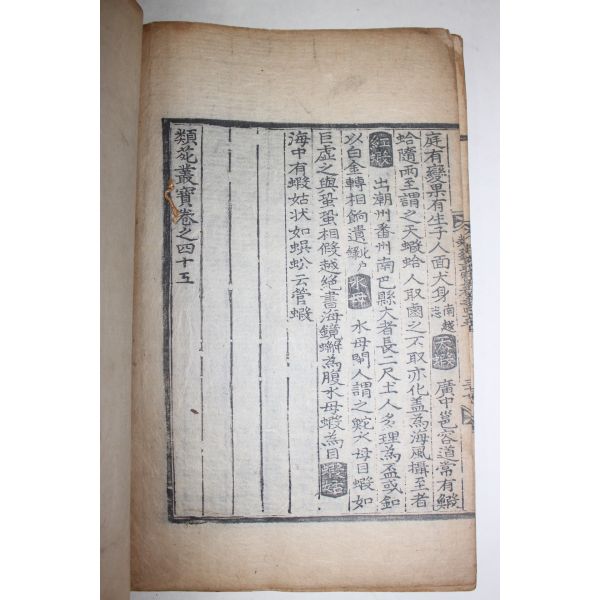 庭有變果有生子人面犬身南越志天蝦廣中邕容道常有鰕
蛤隨雨至謂之天蝦蛤人取鹵之不取亦化盖為海風攝至者
紅蝦出潮州番州南巴縣大者長二尺土人多理為盃或釦
以白金轉相餉遺北户録水母水母閩人謂之鮀水母目蝦如
巨虛之與蛩蛩相假越絶書海鏡蠏為腹水母蝦為目蝦姑
海中有蝦姑状如蜈蚣云管蝦
類苑叢寶卷之四十五